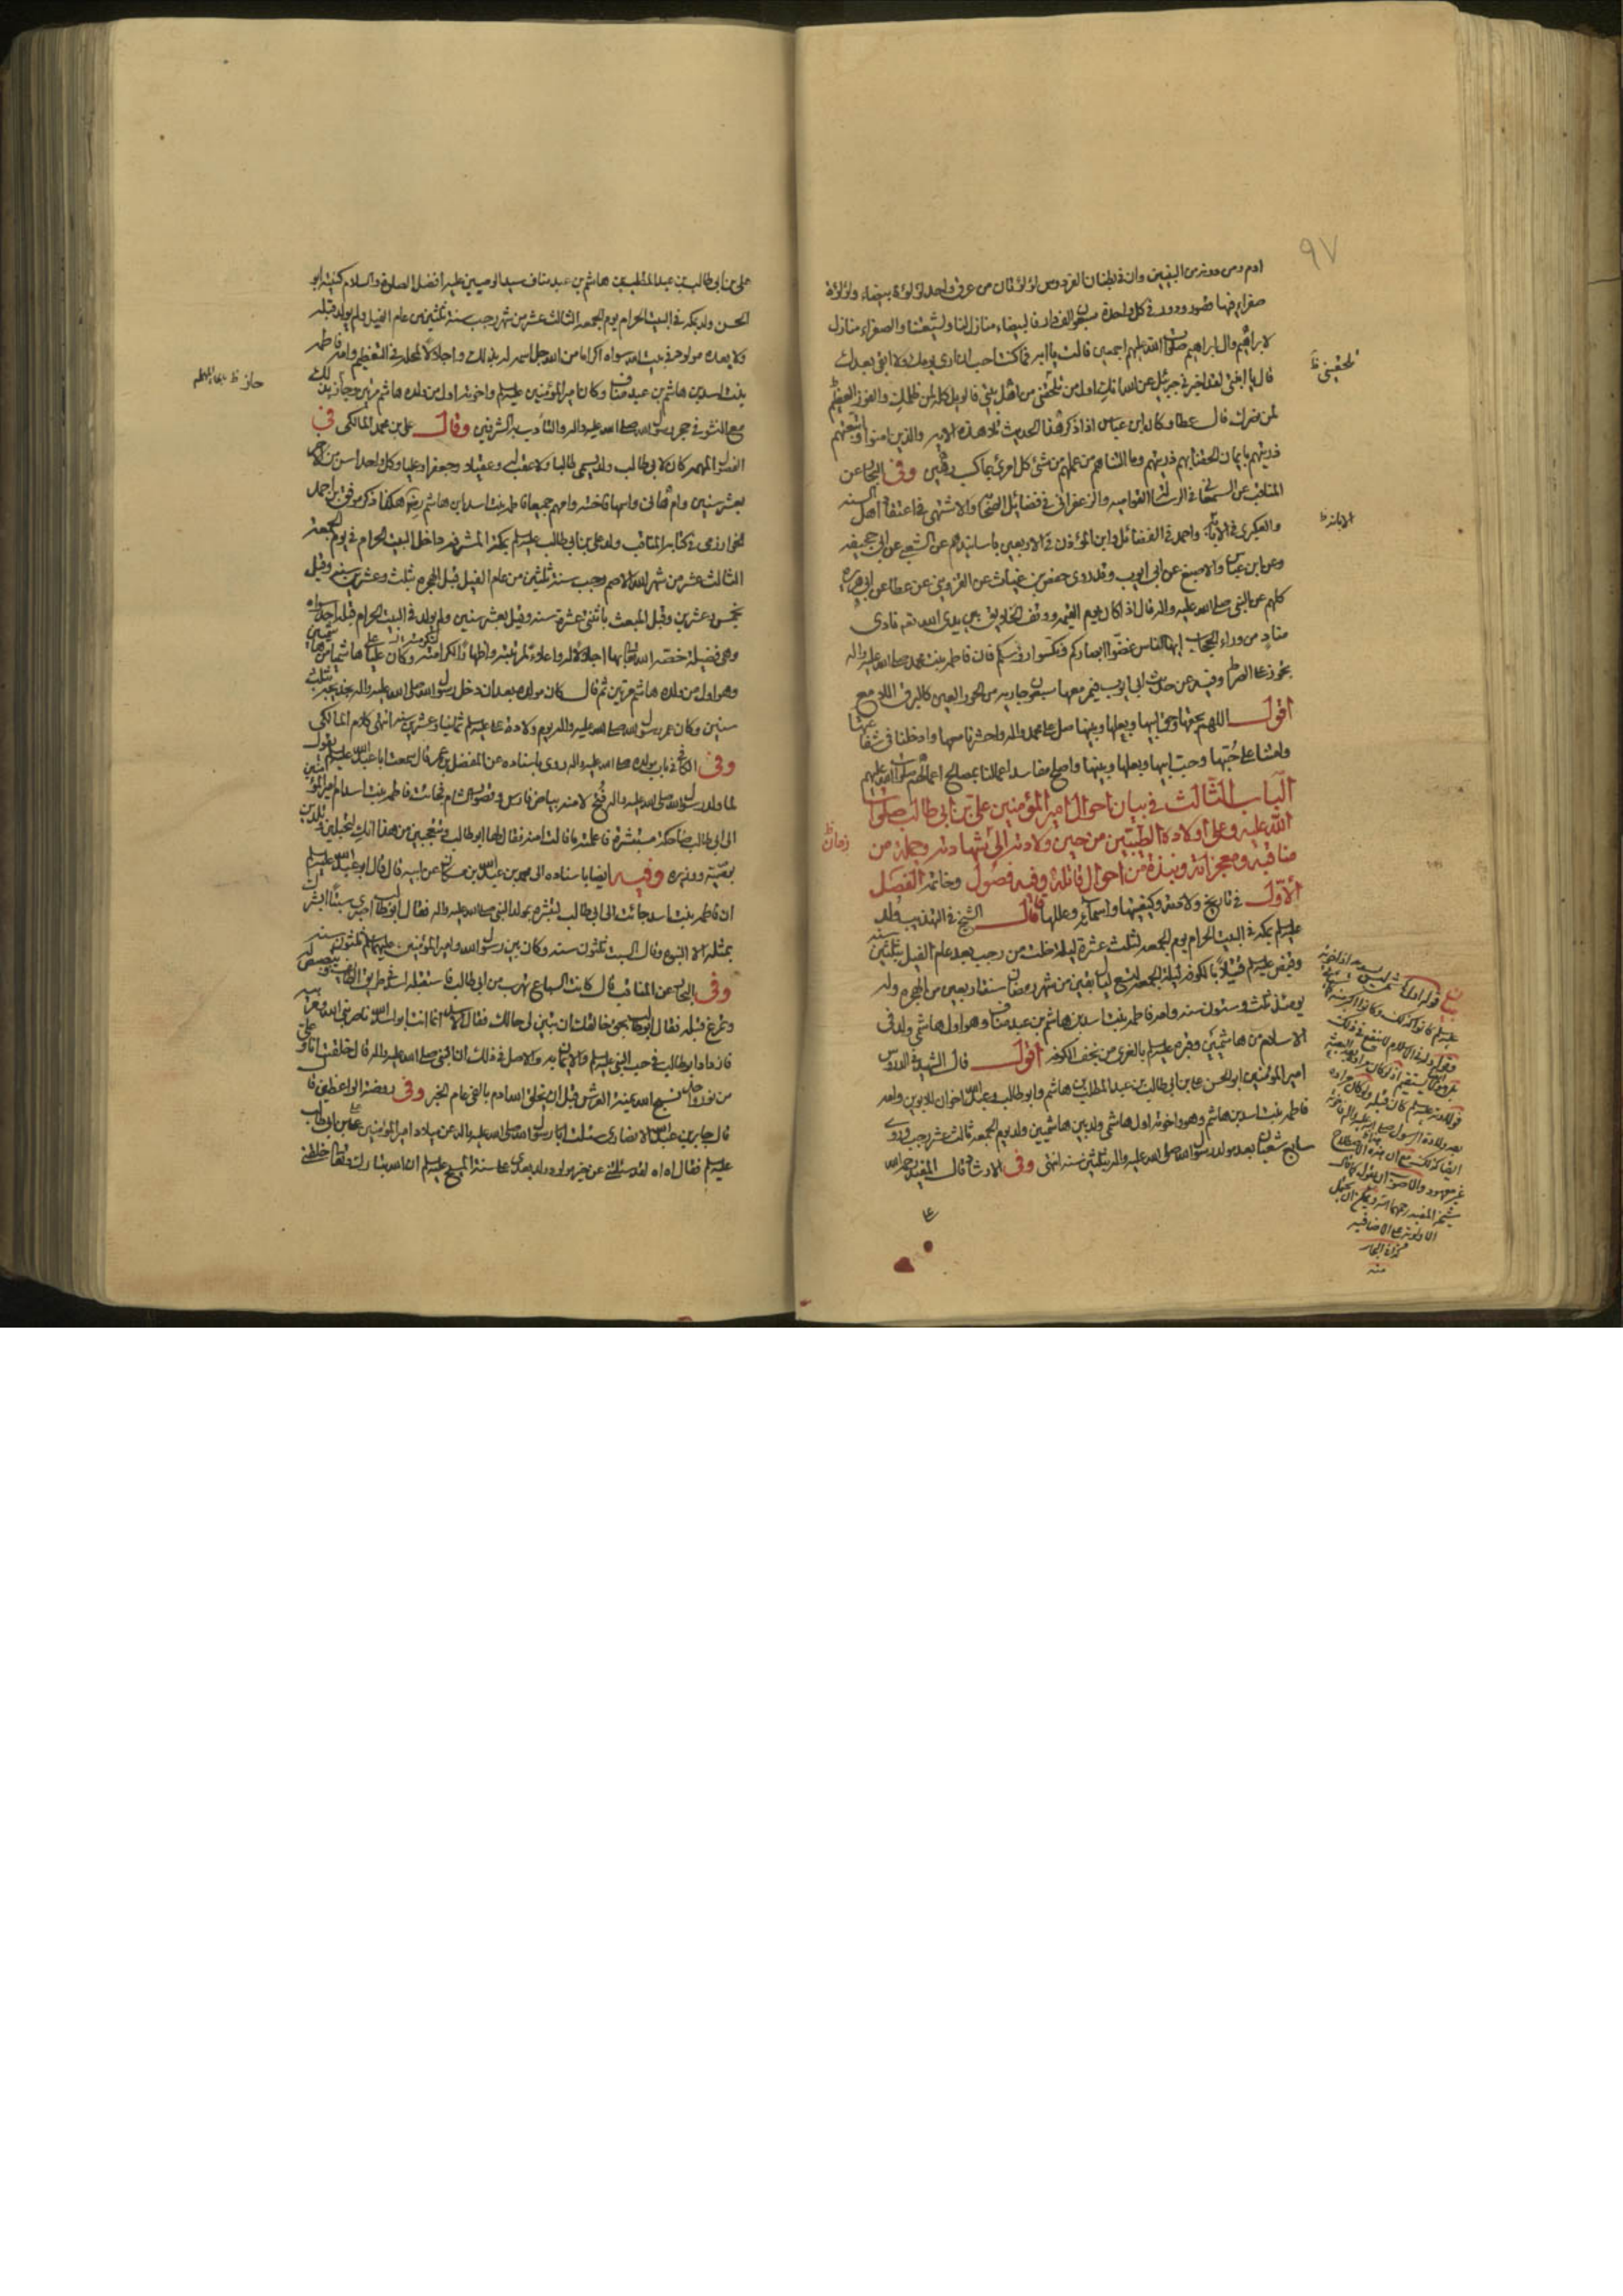 ٩٧
ادم ومن دونه من النبيين وان في بطنان الفردوس لؤلؤتان من عرق واحد لؤلؤة بيضاء ولؤلؤة
صفراء فيها قصور ودور في كل واحدة سبعون الف دار فالبيضاء منازل لنا ولشيعتنا والصفراء منازل
لابراهيم وال ابراهيم صلوات الله عليهم اجمعين قالت يا ابه فما كنت احب ان ارى يومك ولا ابقى بعدك
قال يا ابنتي لقد اخبرني جبرئيل عن الله انك اول من تلحقني من اهل بيتي فالويل كله لمن ظلمك والفوز العظيم
لمن نصرك قال عطا وكان ابن عباس اذا ذكر هذا الحديث تلا هذه الاية والذين امنوا واتبعتهم
ذريتهم بايمان الحقنا بهم ذريتهم وما التناهم من عملهم من شئ كل امرئ بما كسب رهين وفي البحار عن
المناقب عن السمعاني في الرسالة القوامية والزعفراني في فضائل الصحابة والاشنهي في اعتقاد اهل السنه
والعكبري في الابانة واحمد في الفضائل وابن المؤذن في الاربعين باسانيدهم عن الشعبي عن ابي جحيفه
وعن ابن عباس والاصبغ عن ابي ايوب وقد روى حفص بن غياث عن القزويني عن عطا عن ابي هريره
كلهم عن النبي صلى الله عليه واله قال اذا كان يوم القيمه ووقف الخلايق بين يدي الله تعه نادى
مناد من وراء الحجاب ايها الناس غضوا ابصاركم ونكسوا رؤسكم فان فاطمه بنت محمد صلى الله عليه واله
تجوز على الصراط وفيه عن حديث ابي ايوب فيمر معها سبعون جاريه من الحور العين كالبرق اللامع
اقول اللهم بحقها وحق ابيها وبعلها وبنيها صل على محمد واله واحشرنا معها وادخلنا في شفاعتها
وامتنا على حبها وحب ابيها وبعلها وبنيها واصلح مفاسد اعمالنا بمصالح اعمالهم صلوات الله عليهم
الباب الثالث في بيان احوال امير المؤمنين علي بن ابي طالب صلوات
الله عليه وعلى اولاده الطيبين من حين ولادته الى شهادته وجملة من
مناقبه ومعجزاته ونبذة من احوال قاتله وفيه فصول وخاتمه الفصل
الاول في تاريخ ولادته وكيفيتها واسمائه وعللها قال الشيخ في التهذيب ولد
عليه السلم بمكة في البيت الحرام يوم الجمعه لثلث عشرة ليلة خلت من رجب بعد عام الفيل بثلثين سنه
وقبض عليه السلم قتيلا بالكوفه ليلة الجمعه لتسع ليال بقين من شهر رمضان سنة اربعين من الهجره وله
يومئذ ثلث وستون سنه وامه فاطمه بنت اسد بن هاشم بن عبد مناف وهو اول هاشمي ولد في
الاسلام من هاشميين وقبره عليه السلم بالغري من نجف الكوفه اقول قال الشهيد في الدروس
امير المؤمنين ابو الحسن علي بن ابي طالب بن عبد المطلب بن هاشم وابو طالب وعبد الله اخوان للابوين وامه
فاطمه بنت اسد بن هاشم وهو واخوته اول هاشمي ولد بين هاشميين ولد يوم الجمعه ثالث عشر رجب وروى
سابع شعبان بعد مولد رسول الله صلى الله عليه واله بثلثين سنه انتهى وفي الارشاد قال المفيد رحمه الله
على
تلحقيني ظ
الابانه ظ
زمان ظ
علي بن ابي طالب بن عبد المطلب بن هاشم بن عبد مناف سيد الوصيين عليه افضل الصلوة والسلام كنيته ابو
الحسن ولد بمكة في البيت الحرام يوم الجمعه الثالث عشر من شهر رجب سنة ثلثين من عام الفيل ولم يولد قبله
ولا بعده مولود في بيت الله سواه اكراما من الله جل اسمه له بذلك واجلالا لمحله في التعظيم وامه فاطمه
بنت اسد بن هاشم بن عبد مناف وكان امير المؤمنين عليه السلم واخوته اول من ولده هاشم مرتين وحاز بذلك
مع النشو في حجر رسول الله صلى الله عليه واله والتأدب به الشرفين وقال علي بن محمد المالكي في
الفصول المهمه كان لابي طالب ولد يسمى طالبا ولا عقب له وعقيلا وجعفرا وعليا وكل واحد اسن من الاخر
بعشر سنين وام هاني واسمها فاخته وامهم جميعا فاطمه بنت اسد بن هاشم رضه هكذا ذكر موفق بن احمد
الخوارزمي في كتاب المناقب ولد علي بن ابي طالب عليه السلم بمكة المشرفه داخل البيت الحرام في يوم الجمعه
الثالث عشر من شهر الله الاصم رجب سنة ثلثين من عام الفيل قبل الهجره بثلث وعشرين سنه وقيل
بخمس وعشرين وقبل المبعث باثنتي عشرة سنه وقيل بعشر سنين ولم يولد في البيت الحرام قبله احد سواه
وهي فضيلة خصه الله تعالى بها اجلالا له واعلاء لمرتبته واظهارا لكرامته وكان علي هاشميا من هاشميين
وهو اول من ولده هاشم مرتين ثم قال كان مولده بعد ان دخل رسول الله صلى الله عليه واله بخديجه بثلث
سنين وكان عمر رسول الله صلى الله عليه واله يوم ولادة علي عليه السلم ثمانيا وعشرين سنه انتهى كلام المالكي
وفي الكافي في باب مولده صلى الله عليه واله روى باسناده عن المفضل بن عمر قال سمعت ابا عبد الله عليه السلم يقول
لما ولد رسول الله صلى الله عليه واله فتح لامنه بياض فارس وقصور الشام فجائت فاطمه بنت اسد ام امير المؤمنين
الى ابي طالب ضاحكة مستبشرة فاعلمته ما قالت امنه فقال لها ابو طالب وتتعجبين من هذا انك لتحبلين وتلدين
بوصيه ووزيره وفيه ايضا باسناده الى محمد بن عبد الله بن مسكان عن ابيه قال قال ابو عبد الله عليه السلم
ان فاطمه بنت اسد جائت الى ابي طالب لتبشره بمولد النبي صلى الله عليه واله فقال ابو طالب اصبري سبتا ابشرك
بمثله الا النبوه وقال السبت ثلثون سنه وكان بين رسول الله وامير المؤمنين عليهما السلم ثلثون سنه
وفي البحار عن المناقب قال كانت السباع تهرب من ابي طالب فاستقبله اسد في طريق الطائف وبصبص له
وتمرغ قبله فقال ابو طالب بحق خالقك ان تبين لي حالك فقال الاسد انما انت ابو اسد الله ناصر نبي الله ومربيه
فازداد ابو طالب في حب النبي عليه السلم والايمان به والاصل في ذلك ان النبي صلى الله عليه واله قال خلقت انا وعلي
من نور واحد نسبح الله يمنة العرش قبل ان يخلق الله ادم بالفي عام الخبر وفي روضة الواعظين قا
قال جابر بن عبد الله الانصاري سئلت رسول الله صلى الله عليه واله عن ميلاد امير المؤمنين علي بن ابي طالب
عليه السلم فقال اه اه لقد سئلتني عن خير مولود ولد بعدي على سنة المسيح عليه السلم ان الله تبارك وتعالى خلقني